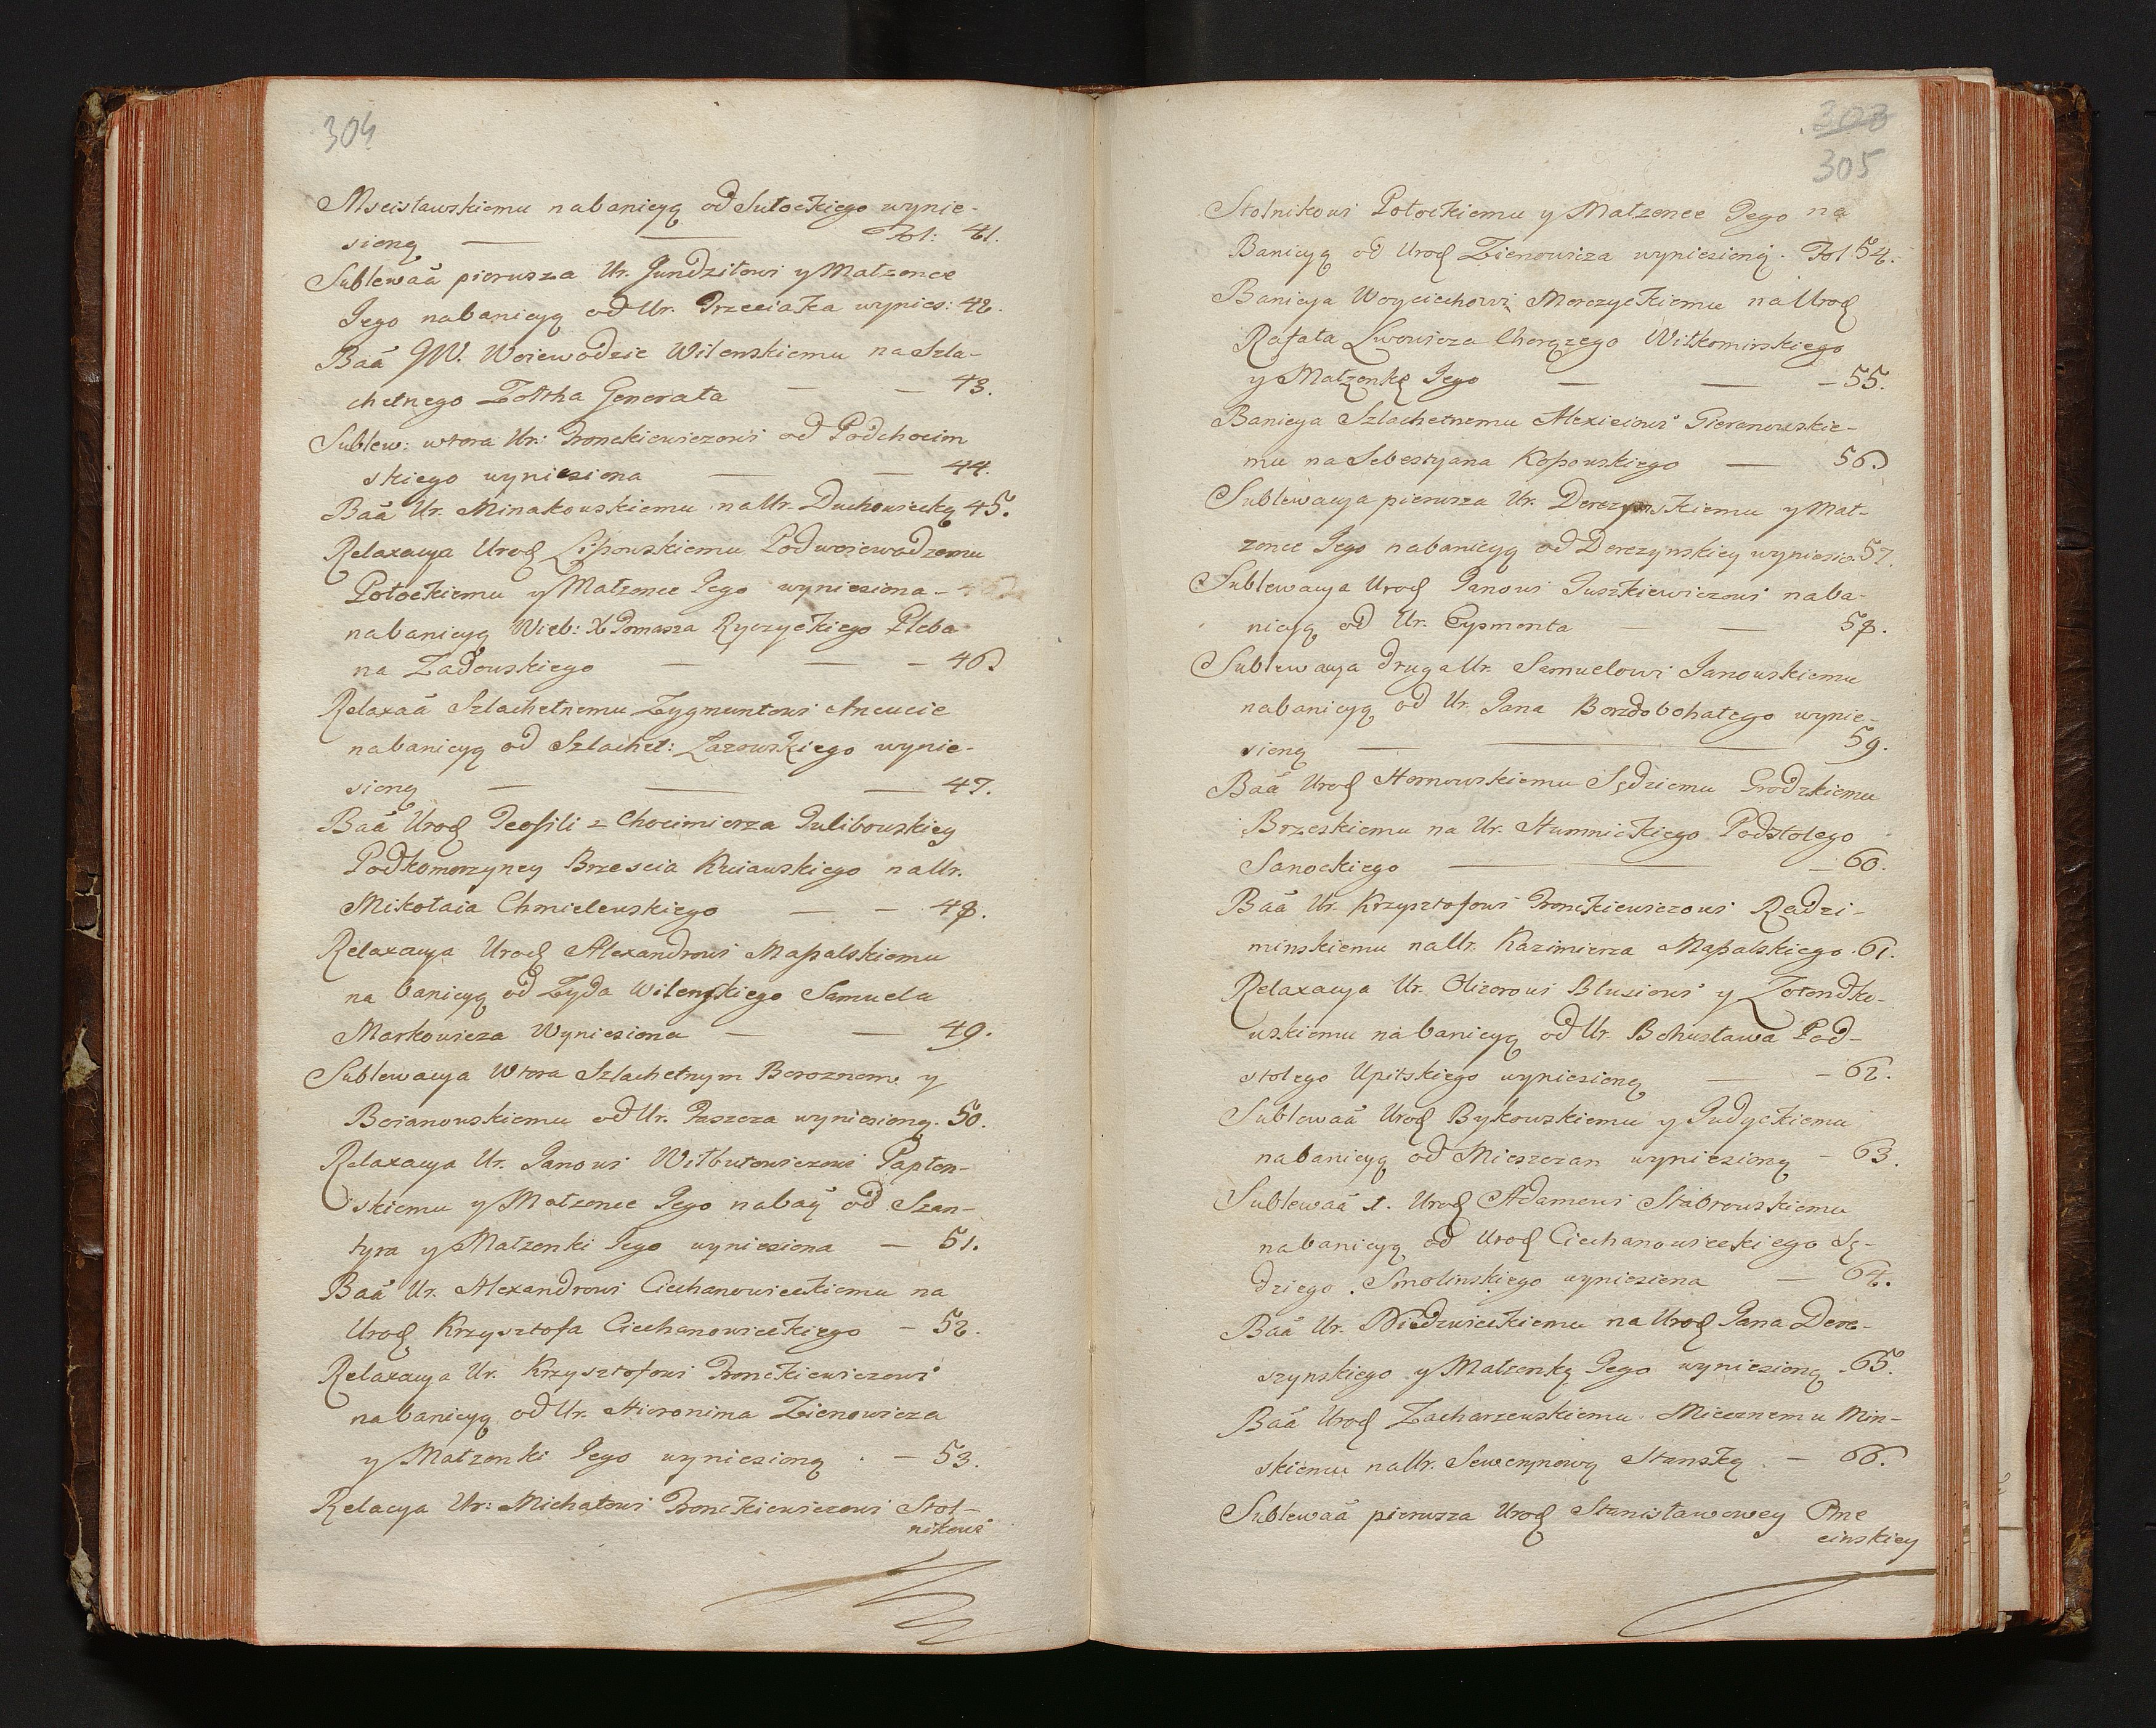 304
Mscisławskiemu na banicyą od Sutockiego wynie-
sioną — — Fol: 41.
Sublewaã pierwsza Ur. Gundziłowi y Małżonce
Jego na banicyą od Ur. Przeciaka wynies: 42.
Baã JW. Woiewodzie Wilenskiemu na Szla-
chetnego Zołtha Generała — — 43.
Sublew: wtora Ur: Pronckiewiczowi od Podchocim
skiego wyniesiona — — 44.
Baã Ur. Minakowskiemu na Ur. Duchowiecką 45.
Relaxacya Urod Lipowskiemu Podwoiewodzemu
Połockiemu y Małżonce Jego wyniesiona -
na banicyą Wieb: X Tomasza Ryczyckiego Pleba
na Zadowskiego — — - 46.
Relaxaã Szlachetnemu Zygmuntowi Ancucie
na banicyą od Szlachet: Lazowskiego wynie-
sioną — — — 47.
Baã Urod Teofili z Chocimierza Gulibowskiey
Podkomorzyney Brzescia Kuiawskiego na Ur.
Mikołaia Chmielewskiego — - 48.
Relaxacya Urod Alexandrowi Massalskiemu
na banicyą od Zyda Wilenskiego Samuela
Markowicza Wyniesiona — — 49.
Sublewacya Wtora Szlachetnym Boroznom y
Boianowskiemu od Ur. Paszcza wyniesioną. 50.
Relaxacya Ur. Janowi Witbutowiczowi Papłon-
skiemu y Małzonce Jego na baą od Szan-
tyra y Małżonki Jego wyniesiona — 51.
Baã Ur. Alexandrowi Ciechanowieckiemu na
Urod Krzysztofa Ciechanowieckiego - 52.
Relaxacya Ur. Krzysztofowi Pronckiewiczowi
na banicyą od Ur. Hieronima Zienowicza
y Małżonki Jego wyniesioną . - 53.
Relacya Ur: Michałowi Pronckiewiczowi Stol-
nikowi
303
305
Stolnikowi Połockiemu y Małżonce Jego na
Banicyą od Urod Zienowicza wyniesioną. Fol 54.
Banicya Woyciechowi Morczyckiemu na Urod
Rafała Lwowicza Chorązego Wiłkomirskiego
y Małżonkę Jego — — - 55.
Banicya Szlachetnemu Alexieiowi Gieranowskie-
mu na Sebestyana Kossowskiego — 56.
Sublewacya pierwsza Ur. Derezynskiemu y Mał-
zonce Jego na banicyą od Derezynskiey wyniesio. 57.
Sublewacya Urod Janowi Juszkiewiczowi na ba-
nicyą od Ur. Eysmonta — — 58.
Sublewacya druga Ur. Samuelowi Janowskiemu
na banicyą od Ur. Jana Borzdobohatego wynie-
sioną — — 59.
Baã Urod Hornowskiemu Sędziemu Grodzkiemu
Brzeskiemu na Ur. Humnickiego Podstolego
Sanockiego — — 60.
Baã Ur. Krzysztofowi Pronckiewiczowi Radzi-
minskiemu na Ur. Kazimierza Massalskiego. 61.
Relaxacya Ur. Olizarowi Blusiowi y Zołondko-
wskiemu na banicyą od Ur. Bohusława Pod-
stolego Upitskiego wyniesioną — - 62.
Sublewaã Urod Bykowskiemu y Judyckiemu
na banicyą od Mieszczan wyniesioną - 63.
Sublewaã 1. Urod Adamowi Stabrowskiemu
na banicyą od Urod Ciechanowieckiego Sę-
dziego Smolinskiego wyniesiona — 64.
Baã Ur. Niedzwieckiemu na Urod Jana Dere-
szynskiego y Małżonkę Jego wyniesioną 65.
Baã Urod Zacharzewskiemu Miecznemu Min-
skiemu na Ur. Sewerynową Stanską - 66.
Sublewaã pierwsza Urod Stanisławowey One
cinskiey